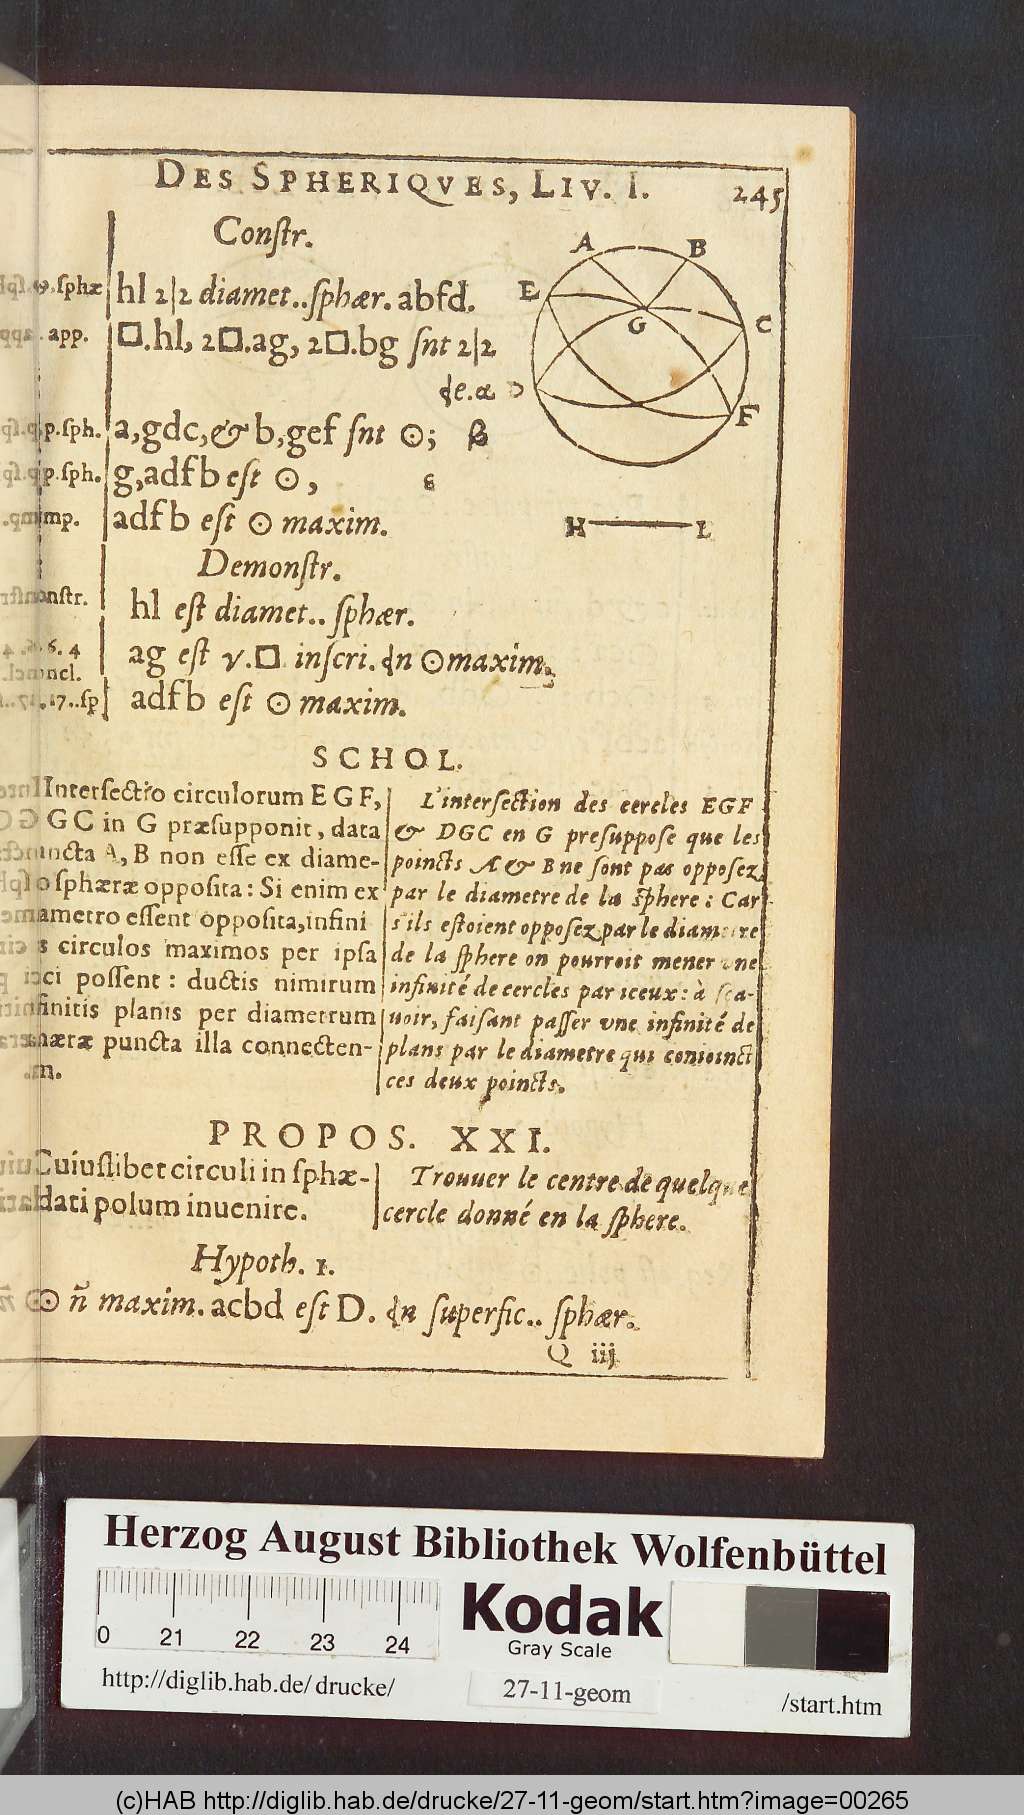 DES SPHERIQVES, LIV. I. 245
Conſtr.
ſphæ hl 2|2 diamet..ſphær. abfd.
app. □.hl, 2□.ag, 2□.bg ſnt 2|2
de.α
p.ſph. a,gdc,& b,gef ſnt ⊙; β
p.ſph. g,adfb eſt ⊙,
adfb eſt ⊙ maxim.
A B
E
G C
D
F
H L
Demonſtr.
hl eſt diamet.. ſphær.
6. 4 ag eſt v.□ inſcri. dn ⊙maxim.
17..ſp adfb eſt ⊙ maxim.
SCHOL.
Interſectio circulorum EGF,
GC in G præſupponit, data
A, B non eſſe ex diame-
o ſphæræ oppoſita: Si enim ex
ametro eſſent oppoſita, infini
circulos maximos per ipſa
ci poſſent: ductis nimirum
finitis planis per diametrum
puncta illa connecten-
m.
L'interſection des cercles EGF
& DGC en G preſuppoſe que les
poincts A & B ne ſont pas oppoſez
par le diametre de la ſphere: Car
s'ils eſtoient oppoſez par le diametre
de la ſphere on pourroit mener vne
infinité de cercles par iceux: à ſça-
uoir, faiſant paſſer vne infinité de
plans par le diametre qui conioinct
ces deux poincts.
PROPOS. XXI.
Cuiuſlibet circuli in ſphæ-
dati polum inuenire.
Trouuer le centre de quelque
cercle donné en la ſphere.
Hypoth. 1.
⊙ ñ maxim. acbd eſt D. dn ſuperfic.. ſphær.
Q iij
Herzog August Bibliothek Wolfenbüttel
0 21 22 23 24
Kodak
Gray Scale
http://diglib.hab.de/drucke/ 27-11-geom /start.htm
(c)HAB http://diglib.hab.de/drucke/27-11-geom/start.htm?image=00265